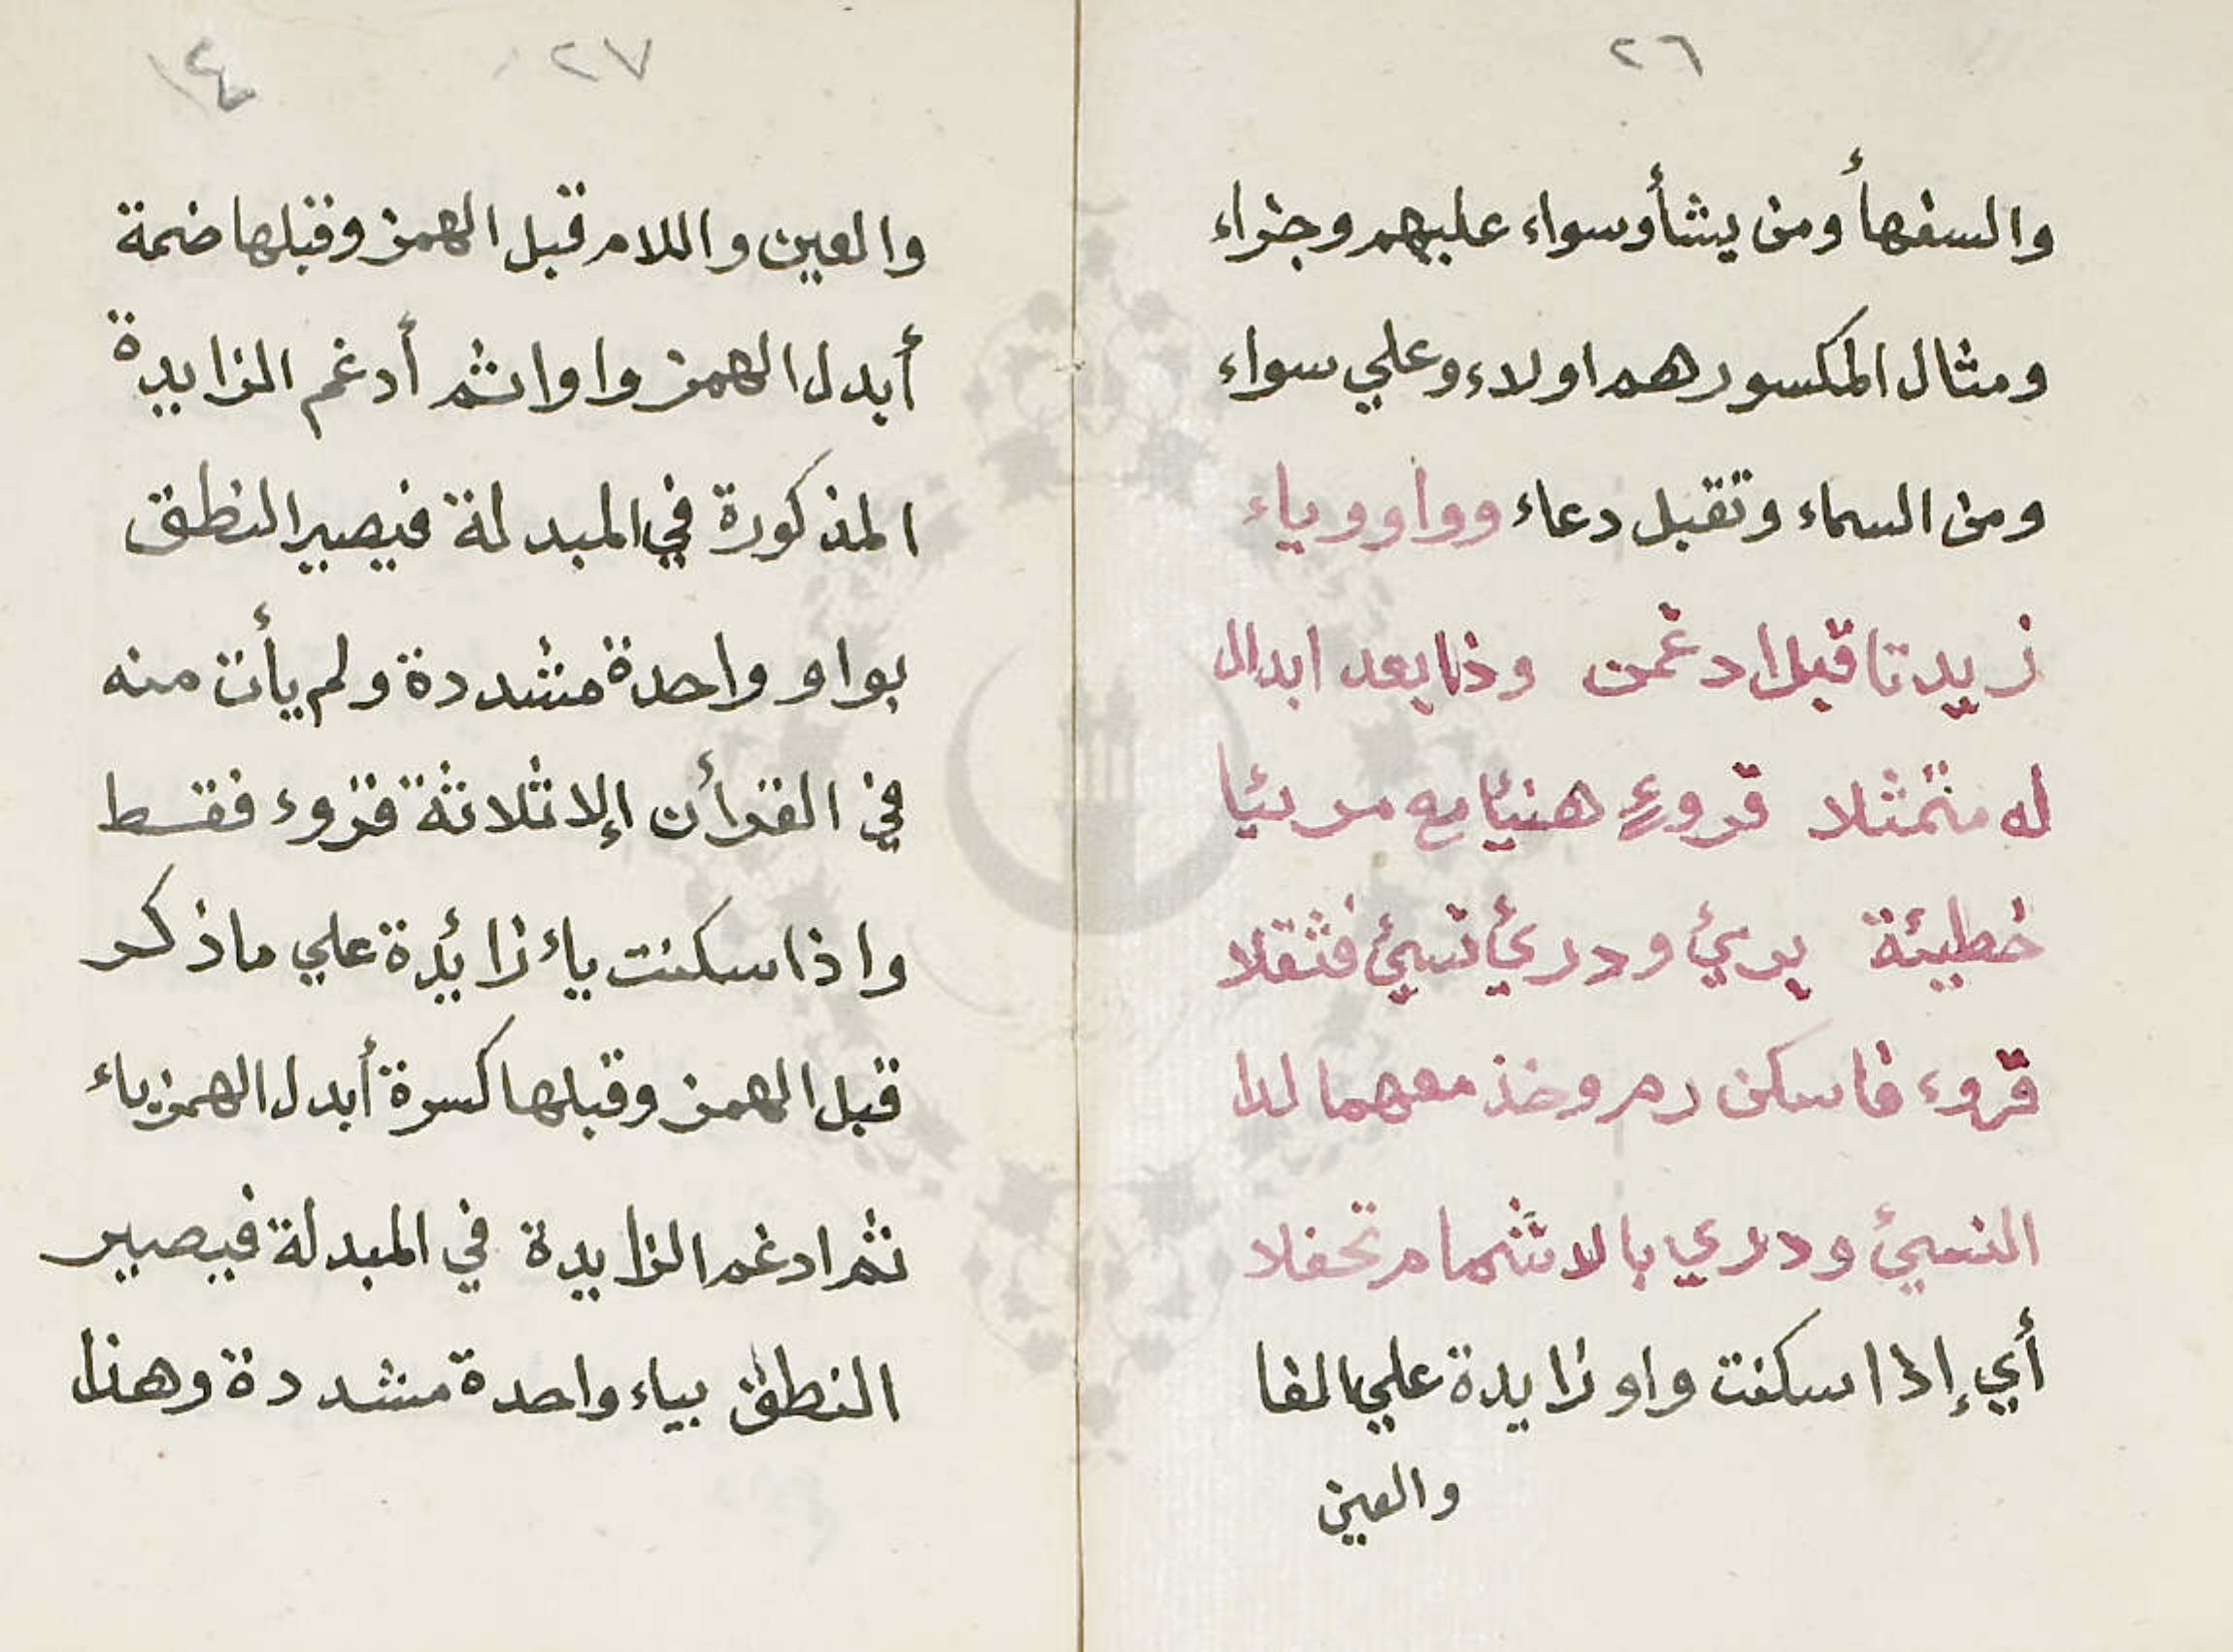 ٢٦
والسفهأ ومن يشأ وسواء عليهم وجزاء
ومثال المكسور هم اولاء وعلي سواء
ومن السماء وتقبل دعاء وواو وياء
زيدتا قبل ادغمن وذا بعد ابدال
له متمثلا قروءٍ هنيئا مع مريئا
خطيئة بريئ ودريئ نسيئ فثقلا
قروء فاسكن رم وخذ معهما لدا
النسيئ ودري بالاشمام تحفلا
أي إذا سكنت واو زايدة علي الفا
والعين
٢٧
١٤
والعين واللام قبل الهمز وقبلها ضمة
أبدل الهمز واوا ثم أدغم الزايدة
المذكورة في المبدلة فيصير النطق
بواو واحدة مشددة ولم يأت منه
في القرأن إلا ثلاثة قروء فقط
واذا سكنت ياء زائدة علي ما ذكر
قبل الهمز وقبلها كسرة أبدل الهمز ياء
ثم ادغم الزايدة في المبدلة فيصير
النطق بياء واحدة مشددة وهذا